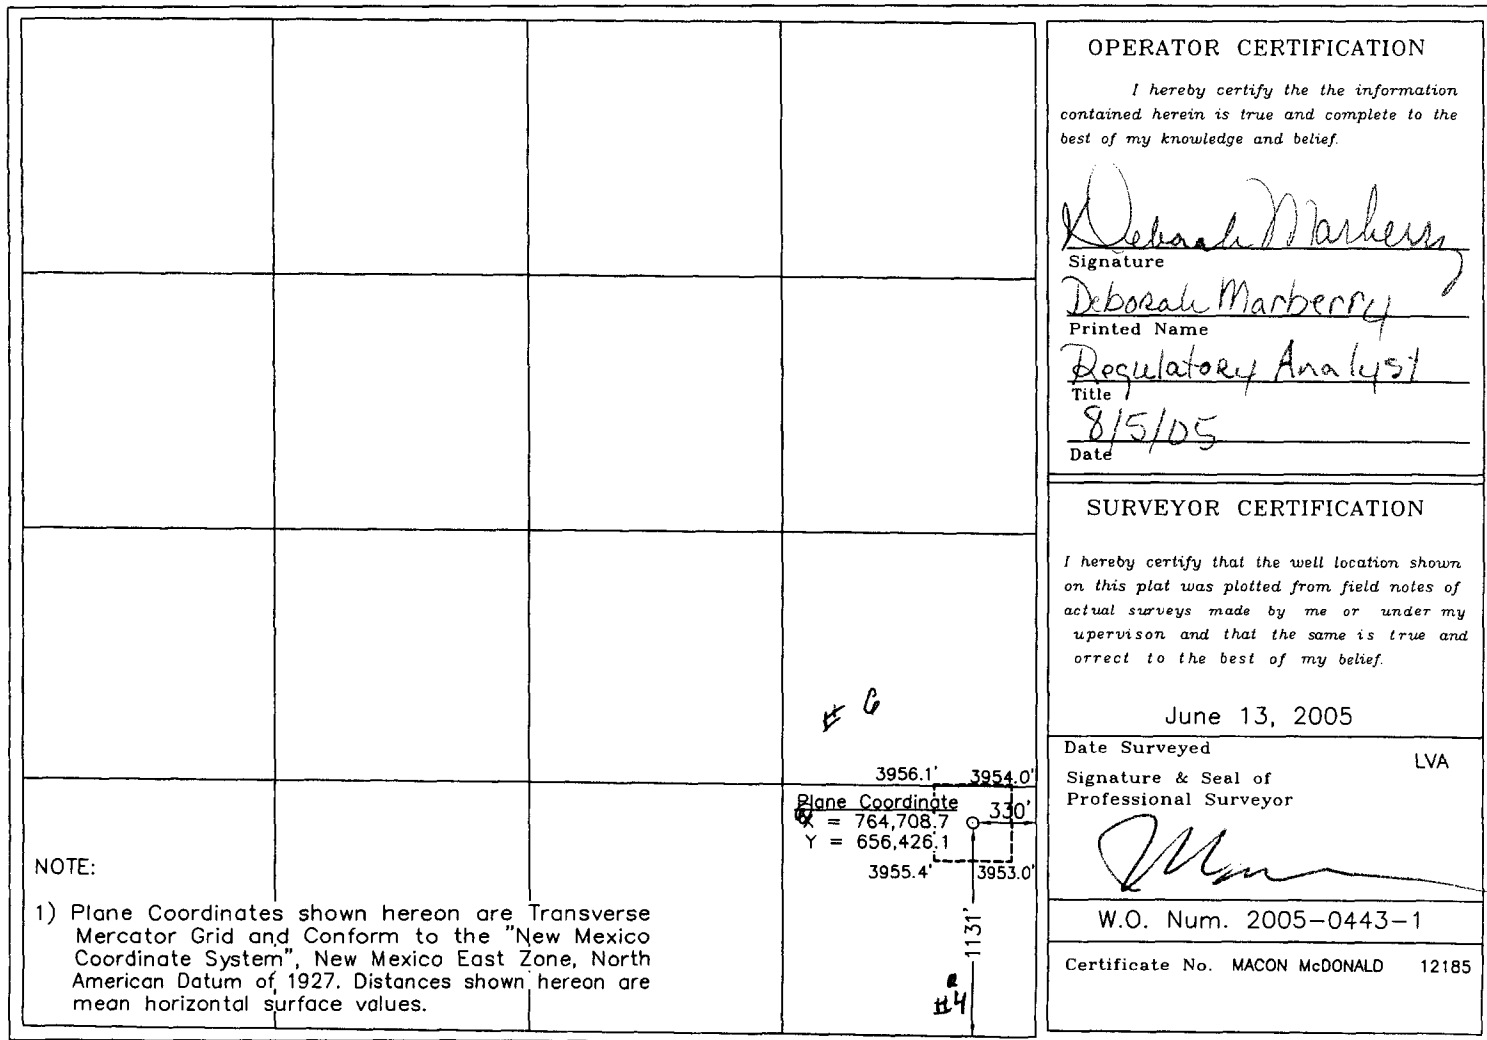 # 6
3956.1' 3954.0'
Plane Coordinate
X = 764,708.7
Y = 656,426.1
330'
3955.4' 3953.0'
1131'
#4
NOTE:
1) Plane Coordinates shown hereon are Transverse
Mercator Grid and Conform to the "New Mexico
Coordinate System", New Mexico East Zone, North
American Datum of 1927. Distances shown hereon are
mean horizontal surface values.
OPERATOR CERTIFICATION
I hereby certify the the information
contained herein is true and complete to the
best of my knowledge and belief.
Deborah Marberry
Signature
Deborah Marberry
Printed Name
Regulatory Analyst
Title
8/5/05
Date
SURVEYOR CERTIFICATION
I hereby certify that the well location shown
on this plat was plotted from field notes of
actual surveys made by me or under my
upervison and that the same is true and
orrect to the best of my belief.
June 13, 2005
Date Surveyed LVA
Signature & Seal of
Professional Surveyor
W.O. Num. 2005-0443-1
Certificate No. MACON McDONALD 12185